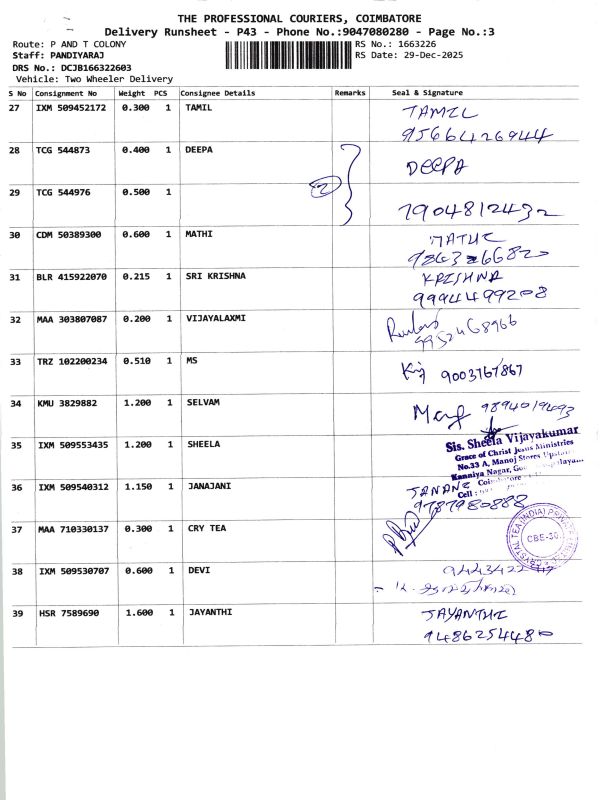 THE PROFESSIONAL COURIERS, COIMBATORE
Delivery Runsheet - P43 - Phone No.:9047080280 - Page No.:3
Route: P AND T COLONY RS No.: 1663226
Staff: PANDIYARAJ RS Date: 29-Dec-2025
DRS No.: DCJB166322603
Vehicle: Two Wheeler Delivery
S No Consignment No Weight PCS Consignee Details Remarks Seal & Signature
27 IXM 509452172 0.300 1 TAMIL TAMIL
9566426944
28 TCG 544873 0.400 1 DEEPA DEEPA
29 TCG 544976 0.500 1 2
7904812432
30 CDM 50389300 0.600 1 MATHI MATHI
31 BLR 415922070 0.215 1 SRI KRISHNA KRISHNA
9994499208
32 MAA 303807087 0.200 1 VIJAYALAXMI
9952468966
33 TRZ 102200234 0.510 1 MS 9003767867
34 KMU 3829882 1.200 1 SELVAM
35 IXM 509553435 1.200 1 SHEELA Sis. Sheela Vijayakumar
Grace of Christ Jesus Ministries
No.33 A, Manoj Stores
Kanniya Nagar,
36 IXM 509540312 1.150 1 JANAJANI Coimbatore
Cell :
9787980888
37 MAA 710330137 0.300 1 CRY TEA CRYSTAL TEA (INDIA) PRIVATE
CBE-30.
38 IXM 509530707 0.600 1 DEVI
39 HSR 7589690 1.600 1 JAYANTHI JAYANTHI
9486254480